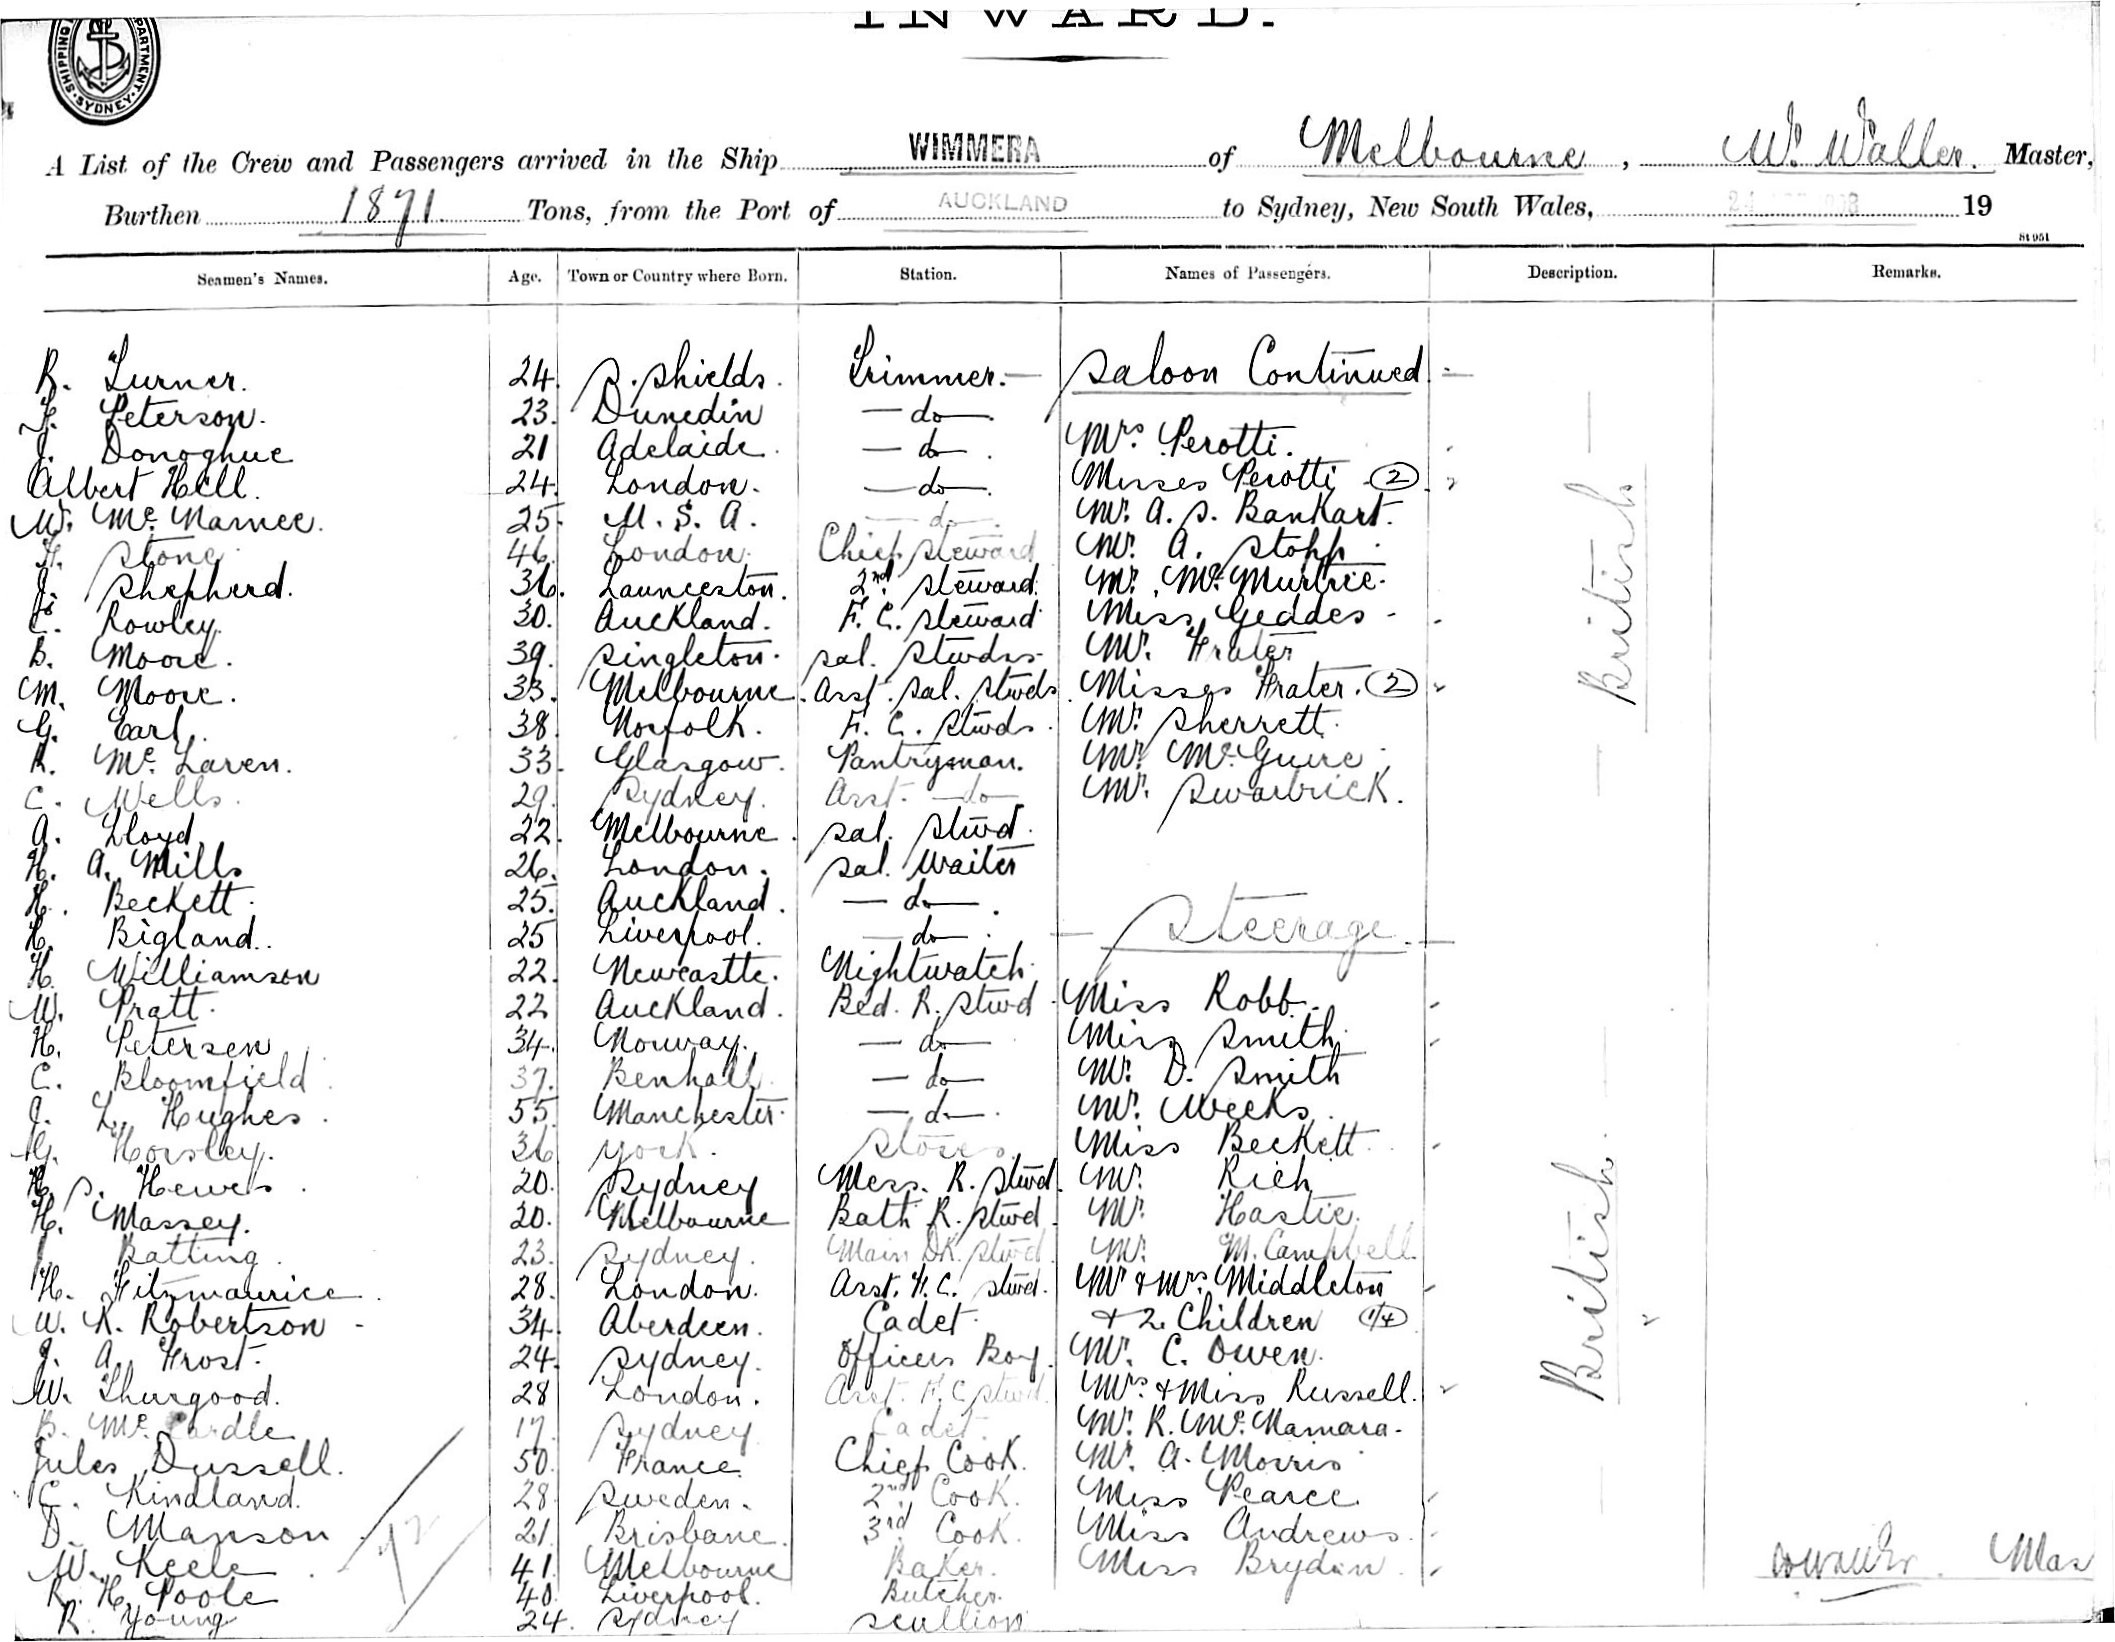 INWARD.
SHIPPING DEPARTMENT. SYDNEY.
A List of the Crew and Passengers arrived in the Ship WIMMERA of Melbourne, W. Waller. Master,
Burthen 1871. Tons, from the Port of AUCKLAND to Sydney, New South Wales, 19
St 951
Seamen's Names. Age. Town or Country where Born. Station. Names of Passengers. Description. Remarks.
R. Turner. 24. S. Shields. Trimmer.— Saloon Continued
Peterson. 23. Dunedin —do—.
J. Donoghue 21 Adelaide. —do—. Mrs. Perotti.
Albert Hell. 24. London. —do—. Misses Perotti (2)
W. Mc. Namee. 25. U. S. A. —do—. Mr. A. S. Bankart.
Stone. 46. London. Chief Steward Mr. A. Stopp.
J. Shepherd. 36. Launceston. 2nd. Steward. Mr. Mc. Murtrie.
C. Rowley. 30. Auckland. F. C. Steward Miss Geddes -
B. Moore. 39. Singleton. Sal. Stwdss. Mr. Frater
M. Moore. 33. Melbourne. Asst. Sal. Stwds. Misses Frater. (2)
G. Earl. 38. Norfolk. F. C. Stwds. Mr. Sherrett.
R. Mc. Laren. 33. Glasgow. Pantryman. Mr. Mc. Guire
C. Wells. 29. Sydney. Asst. —do— Mr. Swarbrick.
A. Lloyd 22. Melbourne. Sal. Stwd.
H. A. Mills 26. London. Sal. Waiter
H. Beckett. 25. Auckland. —do—.
H. Bigland. 25 Liverpool. —do—. — Steerage. —
H. Williamson 22. Newcastle. Nightwatch.
W. Pratt. 22 Auckland. Bed. R. Stwd Miss Robb.
H. Petersen 34. Norway. —do— Miss Smith.
C. Bloomfield. 37. Benhall. —do— Mr. D. Smith
J. L. Hughes. 55. Manchester. —do—. Mr. Weeks.
G. Horsley. 36 York. Stores. Miss Beckett.
S. Hewes. 20. Sydney Mess. R. Stwd. Mr. Rich
H. Massey. 20. Melbourne Bath R. Stwd. Mr. Hastie.
Batting. 23. Sydney. Main DK. Stwd. Mr. M. Campbell
H. Fitzmaurice. 28. London. Asst. F. C. Stwd. Mr & Mrs Middleton
W. R. Robertson - 34. Aberdeen. Cadet. & 2 Children (1/4)
J. A. Frost. 24. Sydney. Officers Boy. Mr. C. Owen.
W. Thurgood. 28 London. Asst. F. C Stwd. Mrs. & Miss Russell.
B. Mc. Cardle 17. Sydney Cadet. Mr. R. Mc. Namara.
Jules Dussell. 50. France. Chief Cook. Mr. A. Morris
C. Kindland. 28. Sweden. 2nd. Cook. Miss Pearce
D. Manson 21. Brisbane. 3rd. Cook. Miss Andrews.
W. Keele. 41. Melbourne Baker. Miss Brydin.
R. H. Poole 40. Liverpool. Butcher.
R. Young 24. Sydney Scullion
— British —
— British. —
12
Mas